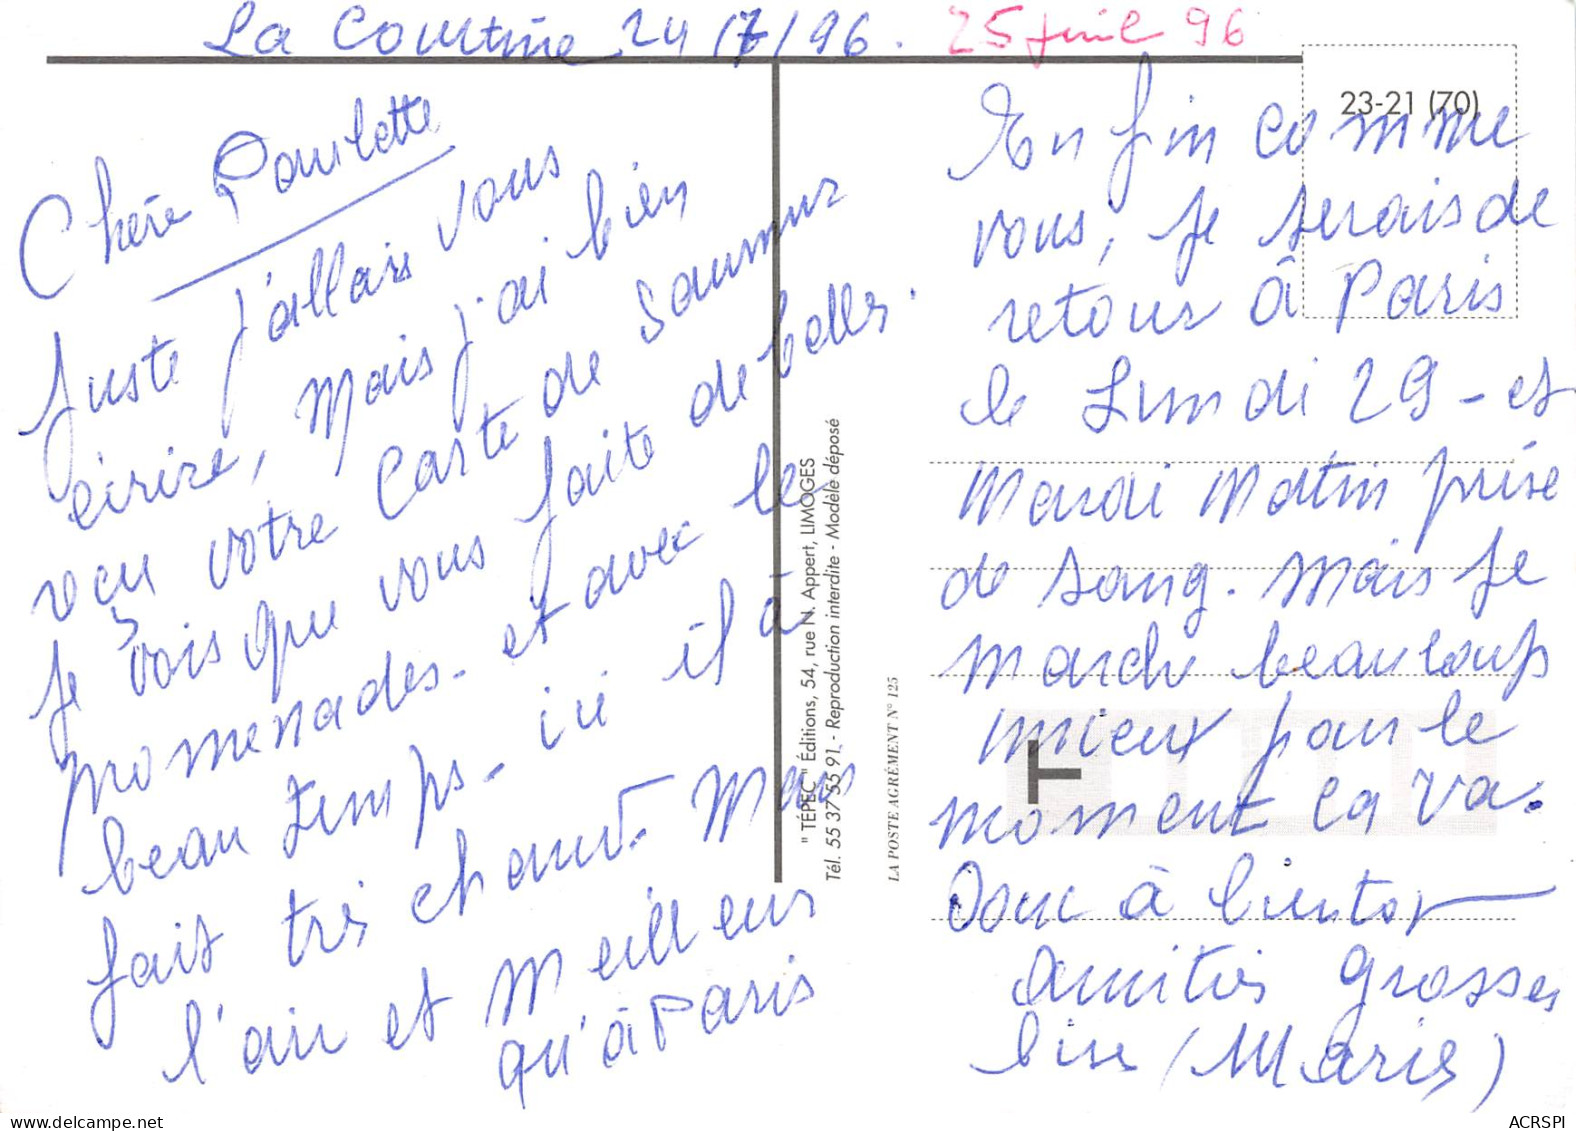 La Courtine 24/7/96. 25 juil 96
Chère Paulette
Juste j'allais vous
écrire, mais j'ai bien
reçu votre carte de Saumur
Je vois que vous faite de belles
promenades - et avec le
beau temps - ici il à
fait très chaud - Mais
l'air et meilleur
qu'à Paris
" TÉPEC " Éditions, 54, rue N. Appert, LIMOGES
Tél. 55 37 55 91 - Reproduction interdite - Modèle déposé
LA POSTE AGRÉMENT N° 125
23-21 (70)
Enfin comme
vous, je serais de
retour à Paris
le Lundi 29 - et
Mardi matin prise
de sang. Mais je
marche beaucoup
mieux pour le
moment ça va.
Donc à bientot
amitiés grosses
bise (Marie)
ACRSPI